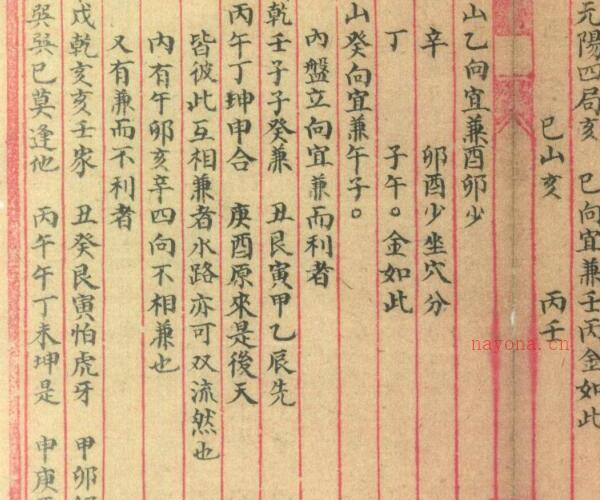 元陽四局亥　巳向宜兼壬丙金如此
巳山亥　丙壬
山乙向宜兼酉卯少
辛　卯酉少坐穴分
丁　子午。金如此
山癸向宜兼午子。
內盤立向宜兼而利者
乾壬子子癸兼　丑艮寅甲乙辰先
丙午丁坤申合　庚酉原來是後天
皆彼此互相兼者水路亦可双流然也
內有午卯亥辛四向不相兼也
又有兼而不利者
戌乾亥亥壬家　丑癸艮寅怕虎牙　甲卯
巽巽巳莫逢他　丙午午丁未坤是　申庚
nayona.cn